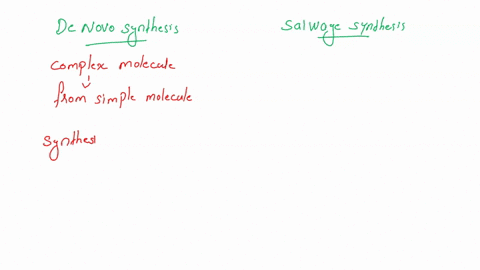 De Novo synthesis
Salwage synthesis
complex molecule
from simple molecule
synthesi